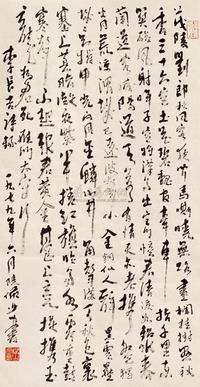 茂陵劉郎秋風客夜聞馬嘶曉無跡畫欄桂樹懸秋
香三十六宮土花碧魏官牽車指千里東
關酸風射眸子空將漢月出宮門憶君清淚如鉛水衰
蘭送客咸陽道天若有情天亦老攜盤獨出
月荒涼渭城已遠波聲小金銅仙人辭漢黑雲壓
城城欲摧甲光向日金鱗開角聲滿天秋色裏
塞上燕脂凝夜紫半捲紅旗臨易水霜重鼓
寒聲不起報君黃金臺上意提攜
玉龍為君死雁門太守行
李長吉詩一九七九年六月陸儼少書